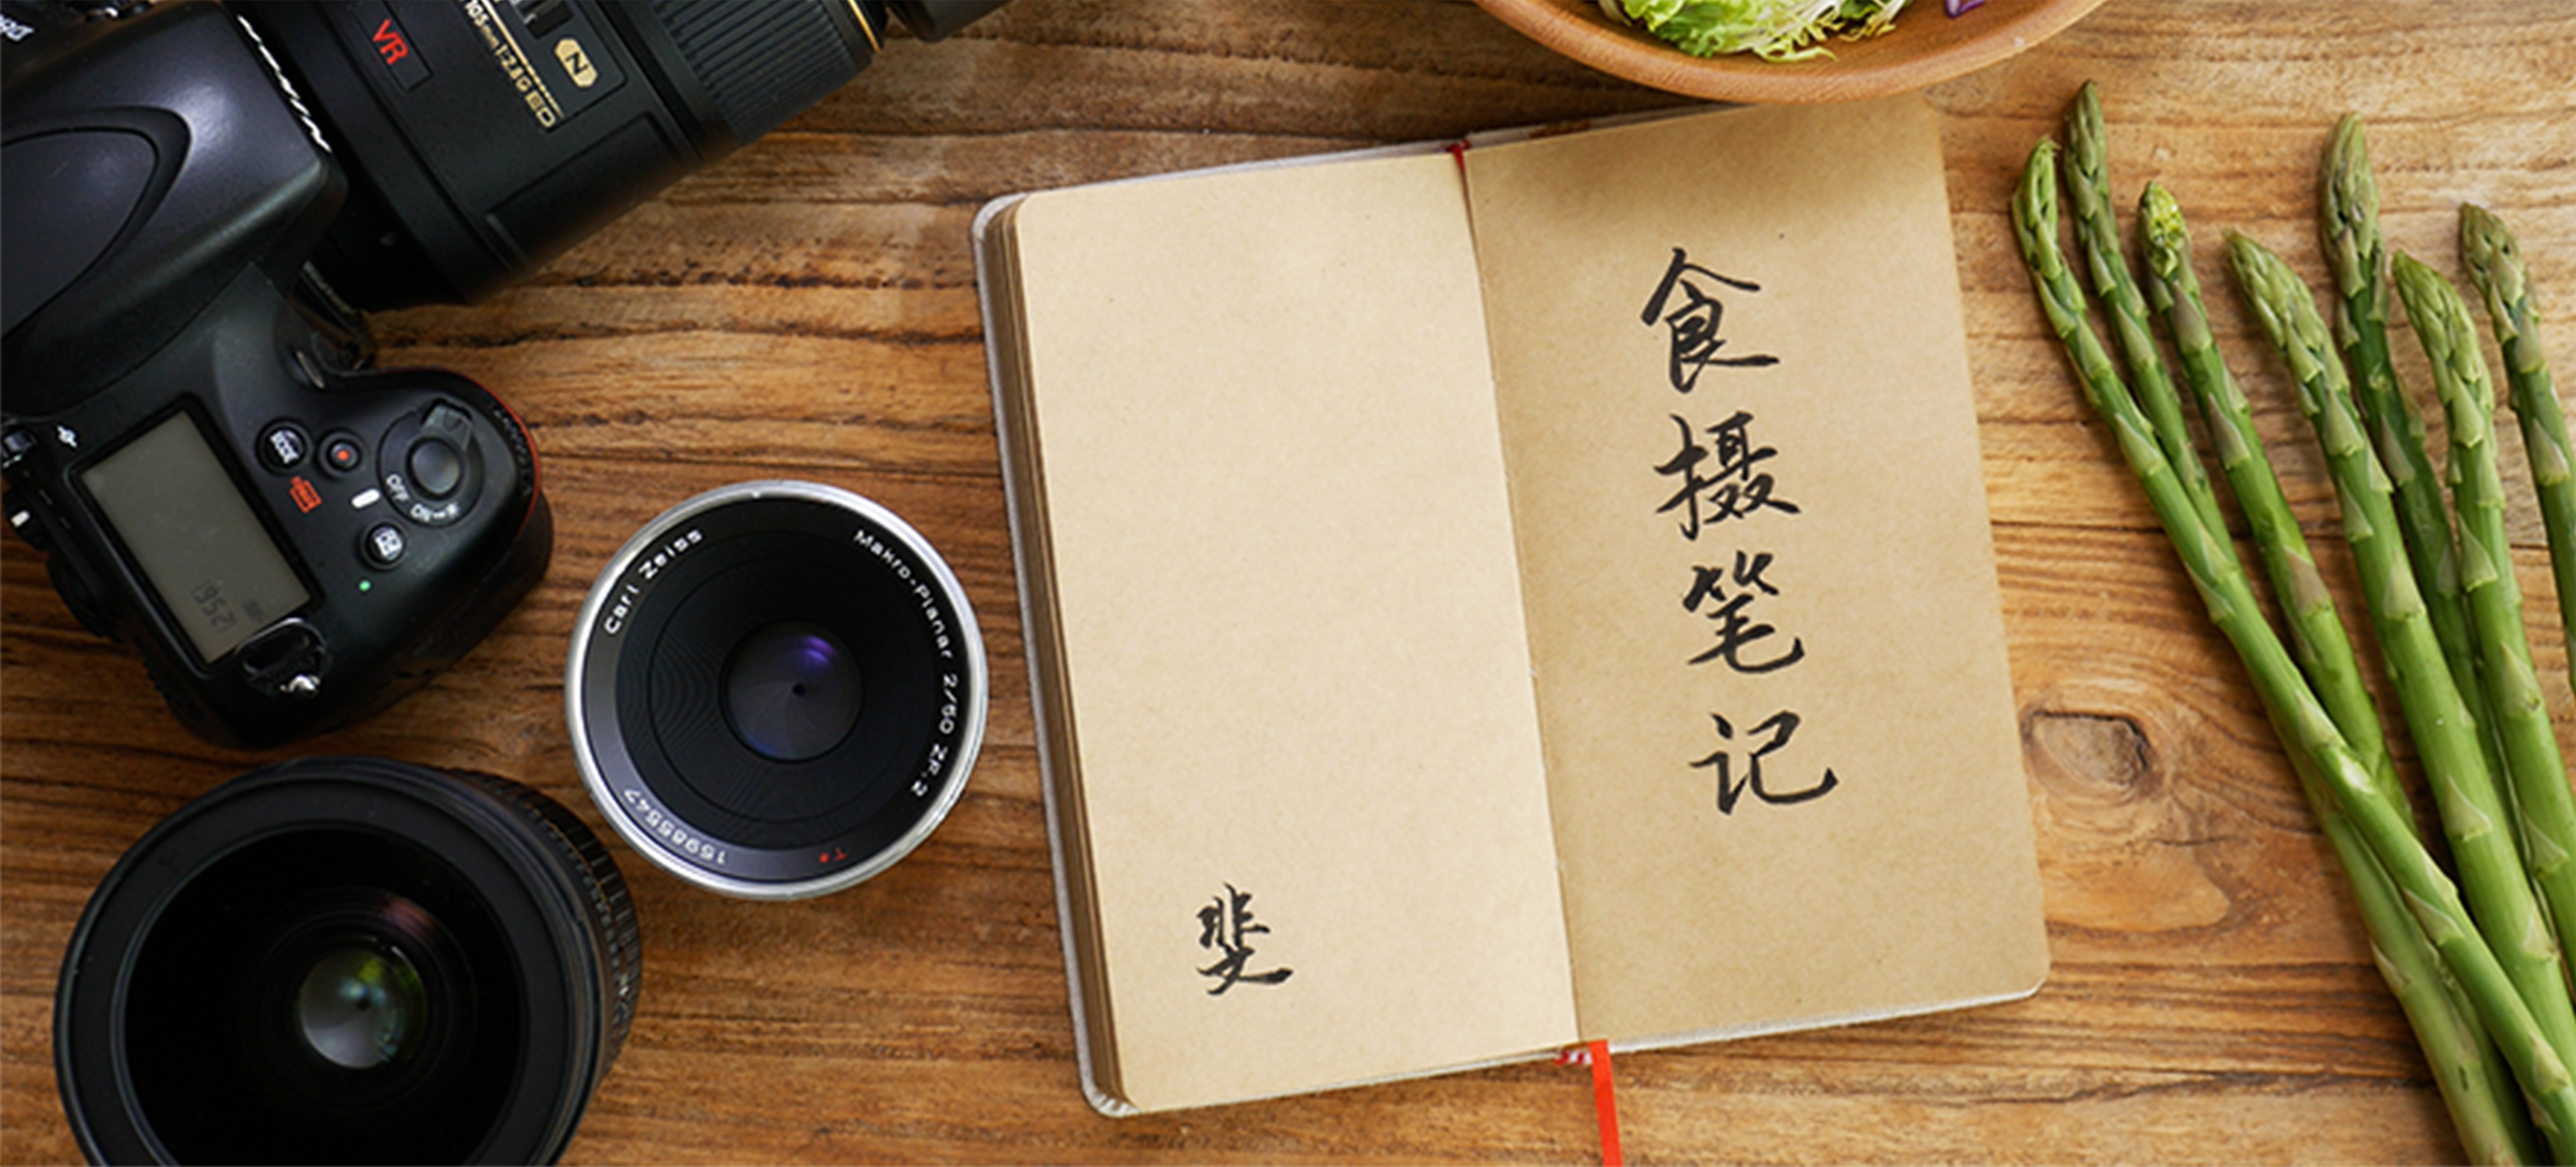 VR
N
105mm 1:2.8 G ED
OFF
ON
1952
Carl Zeiss
Makro-Planar 2/50 ZF.2
T*
15965547
食摄笔记
斐